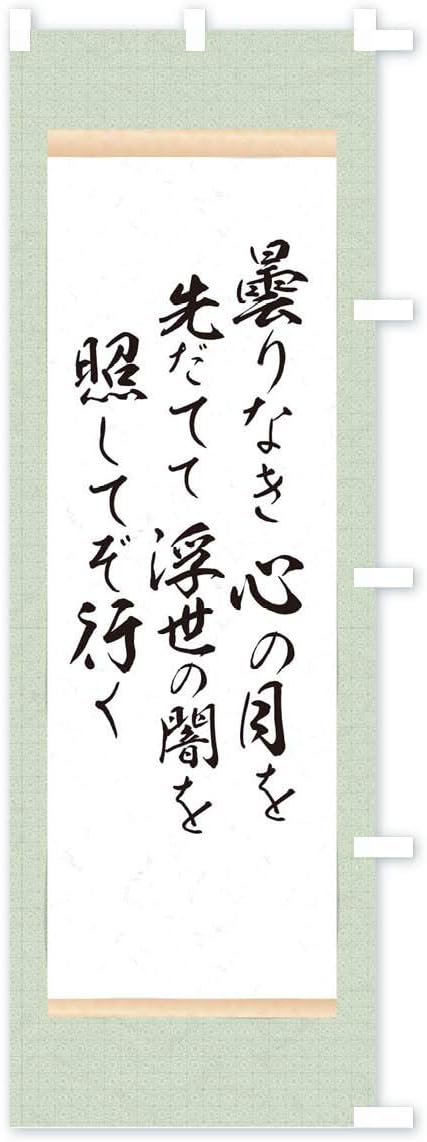 曇りなき心の月を
先だてて浮世の闇を
照してぞ行く